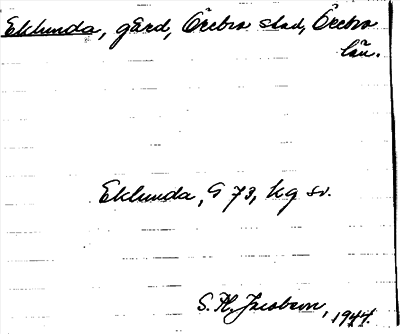 Eklunda, gård, Örebro stad, Örebro
län.
Eklunda, G 73, hg sv.
S. H. Jacobsson, 1944.